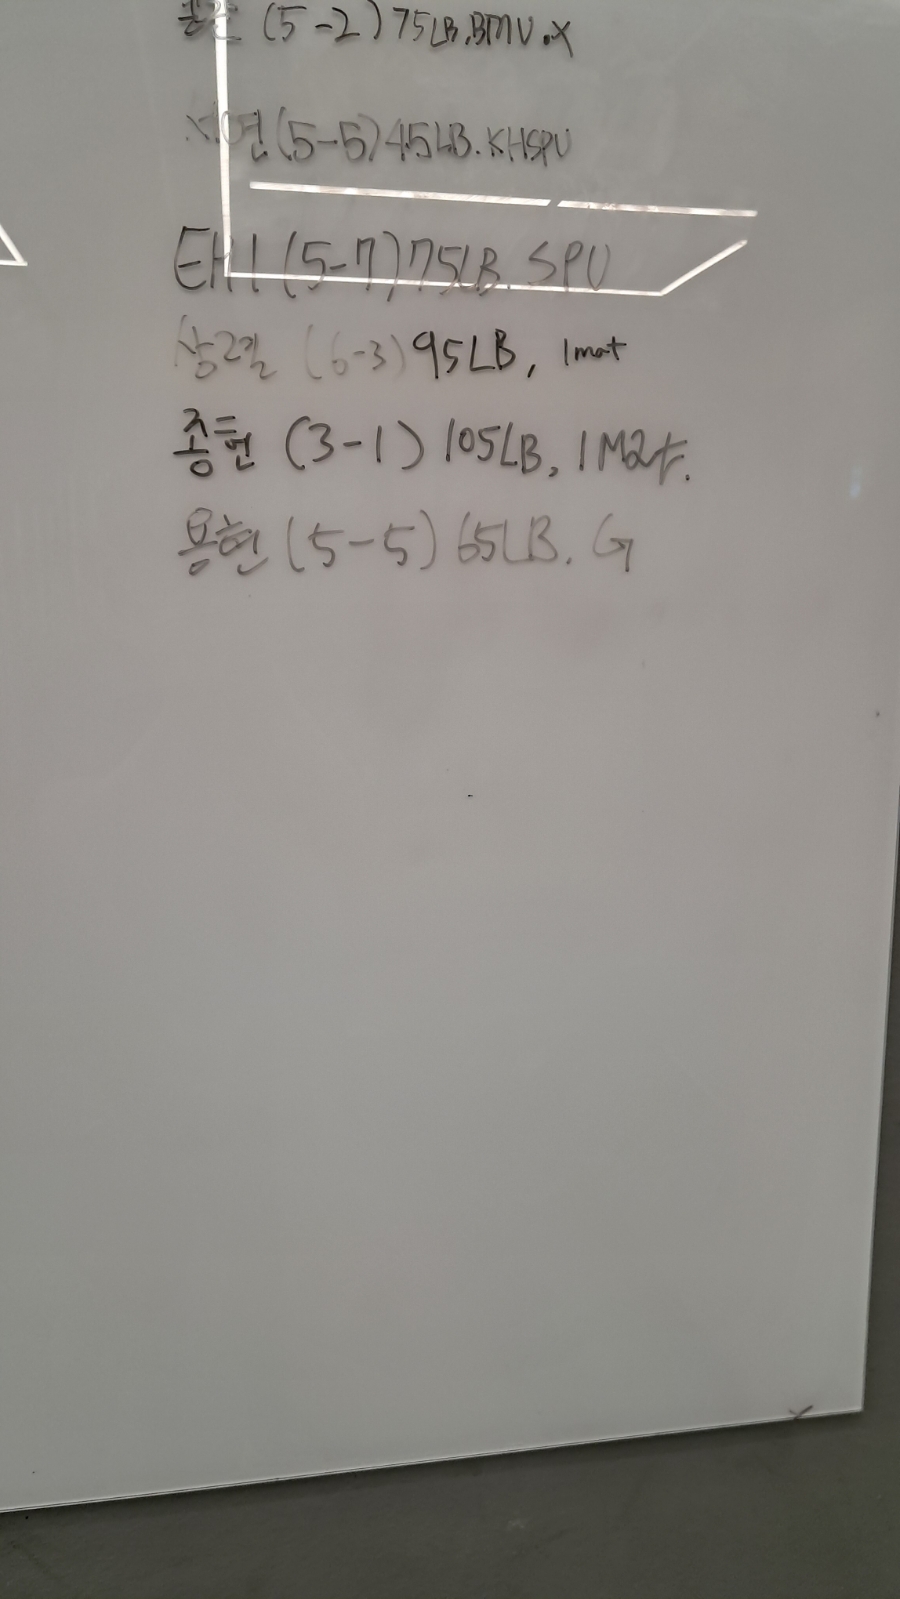 (5-2) 75LB.BMU.X
(5-5) 45LB.KHSPU
(5-7) 75LB. SPU
(6-3) 95LB, 1mat
종현 (3-1) 105LB, 1M2t.
용현 (5-5) 65LB. G